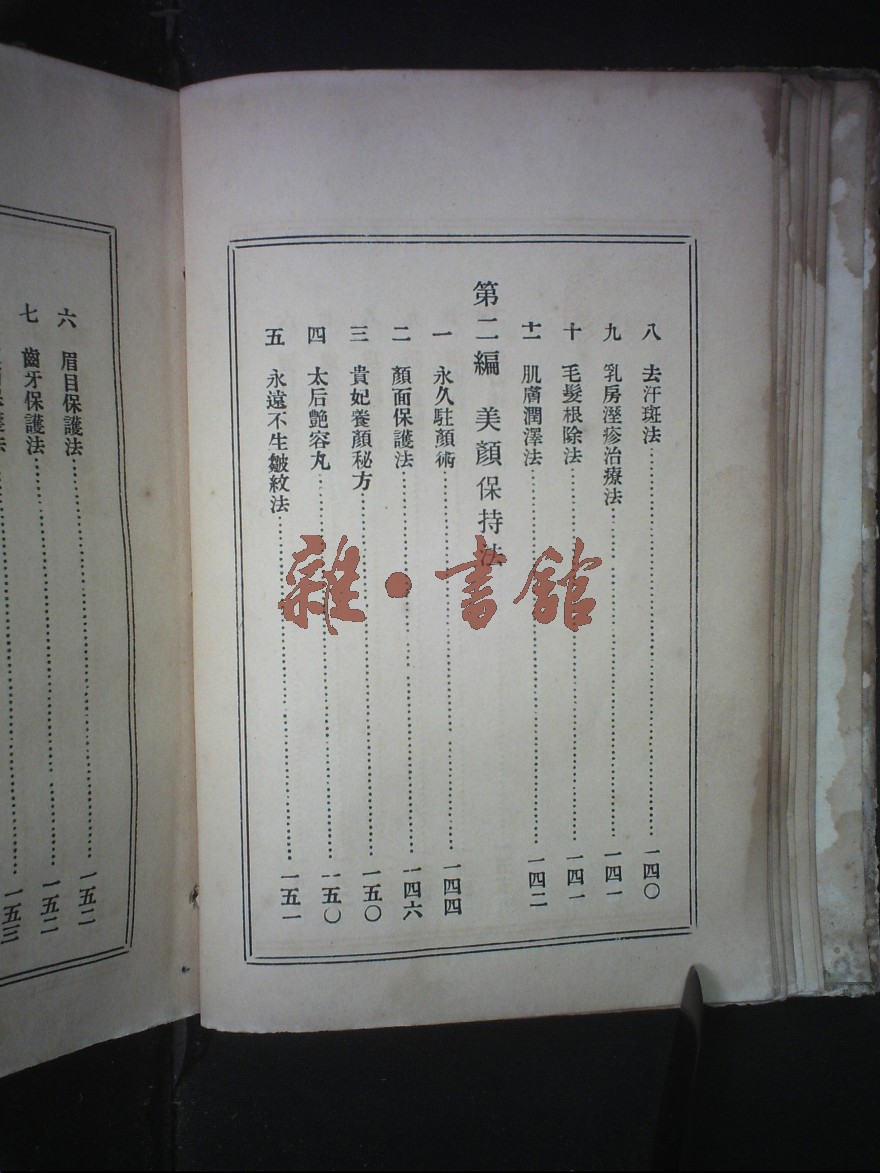 八　去汗斑法……一四〇
九　乳房溼疹治療法……一四一
十　毛髮根除法……一四一
十一　肌膚潤澤法……一四二
第二編　美顏保持法
一　永久駐顏術……一四四
二　顏面保護法……一四六
三　貴妃養顏秘方……一五〇
四　太后艷容丸……一五〇
五　永遠不生皺紋法……一五一
六　眉目保護法……一五二
七　齒牙保護法……一五二
一五三
雜·書館